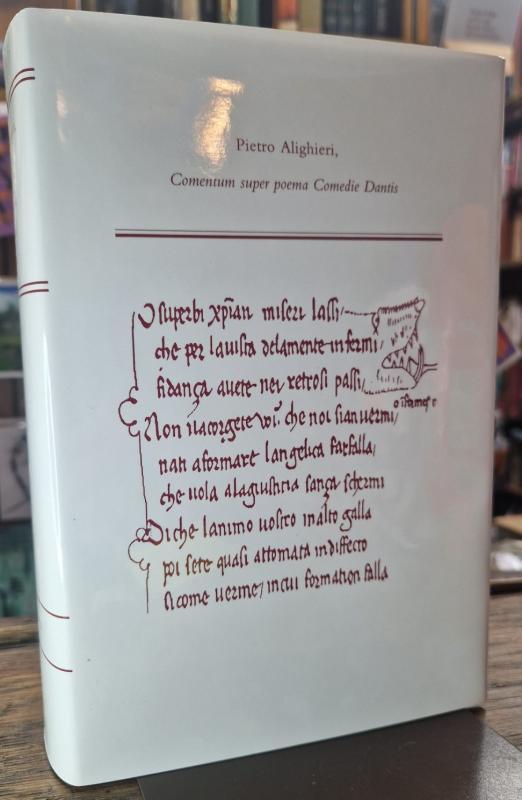 Pietro Alighieri,
Comentum super poema Comedie Dantis
O superbi xp̄ian miseri lassi
che per la uista dela mente infermi
fidança auete nei retrosi passi
Non u acorgete uoi che noi sian uermi
nati a formare langelica farfalla
che uola ala giustitia sança schermi
Di che lanimo uostro in alto galla
poi sete quasi attomata in diffecto
si come uerme in cui formation falla